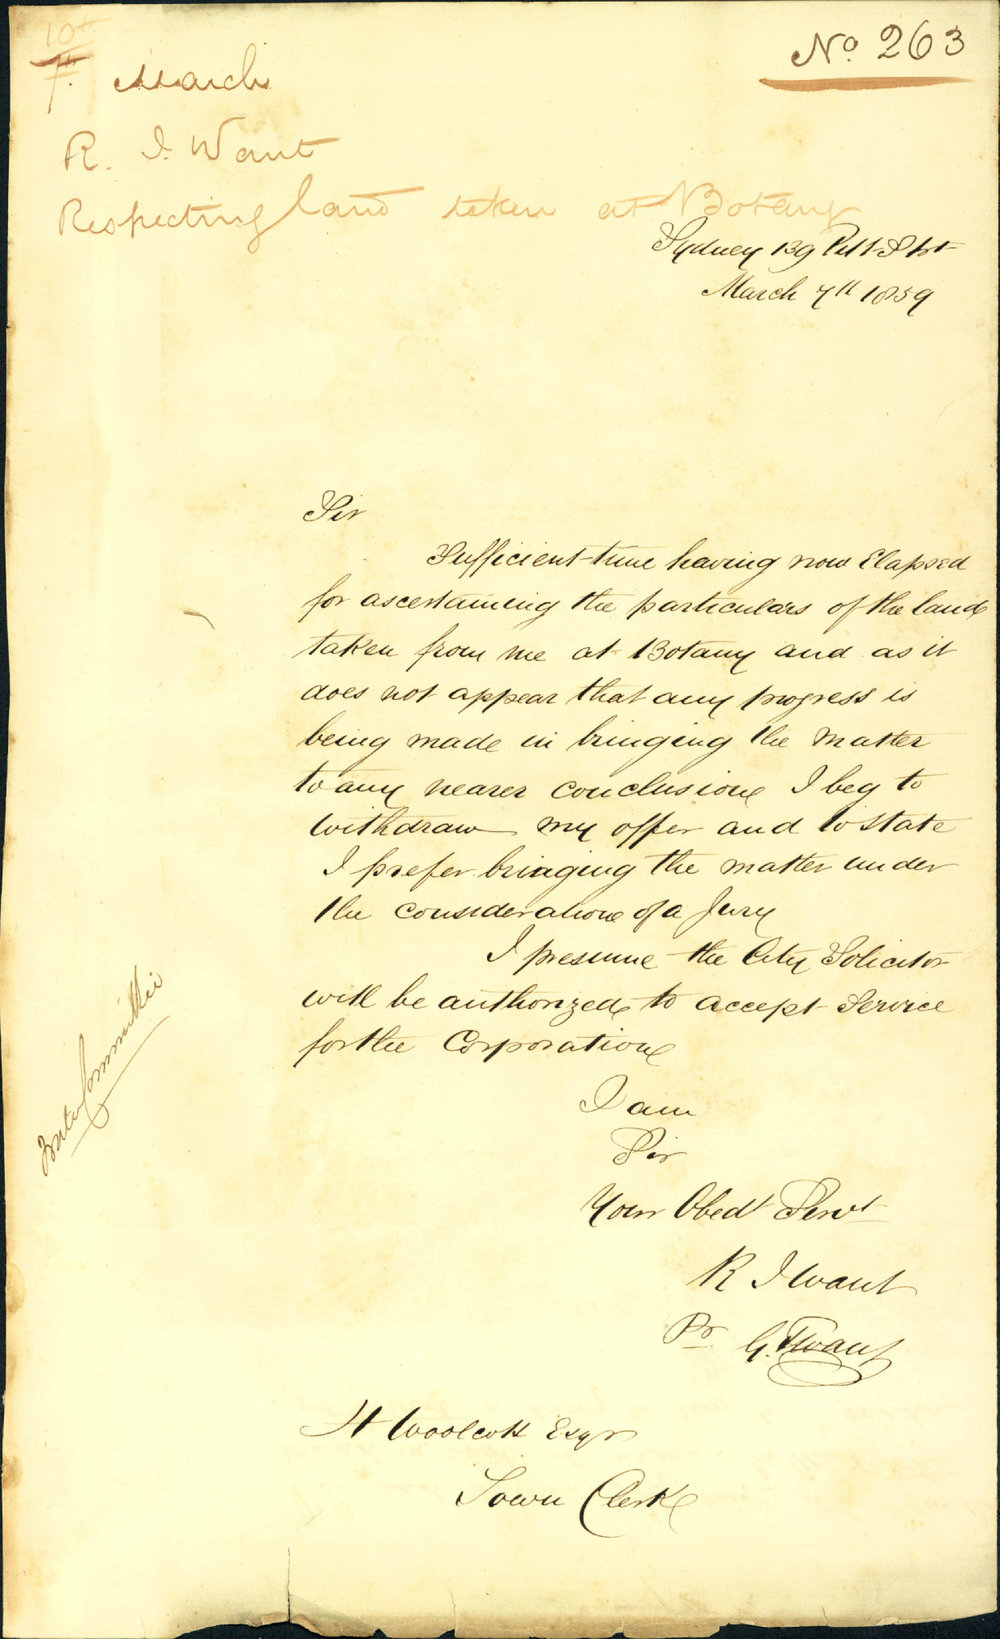 No. 263
10th
7th. March
R. J. Want
Respecting land taken at Botany
Sydney 139 Pitt Strt
March 7th 1859
Sir
Sufficient time having now Elapsed
for ascertaining the particulars of the land
taken from me at Botany and as it
does not appear that any progress is
being made in bringing the Matter
to any nearer conclusion I beg to
withdraw my offer and to state
I prefer bringing the matter under
the consideration of a Jury
I presume the City Solicitor
will be authorized to accept Service
for the Corporation
Water Committee
I am
Sir
Your Obedt Servt
R J Want
Pr. G. F Want
H Woolcott Esqr
Town Clerk